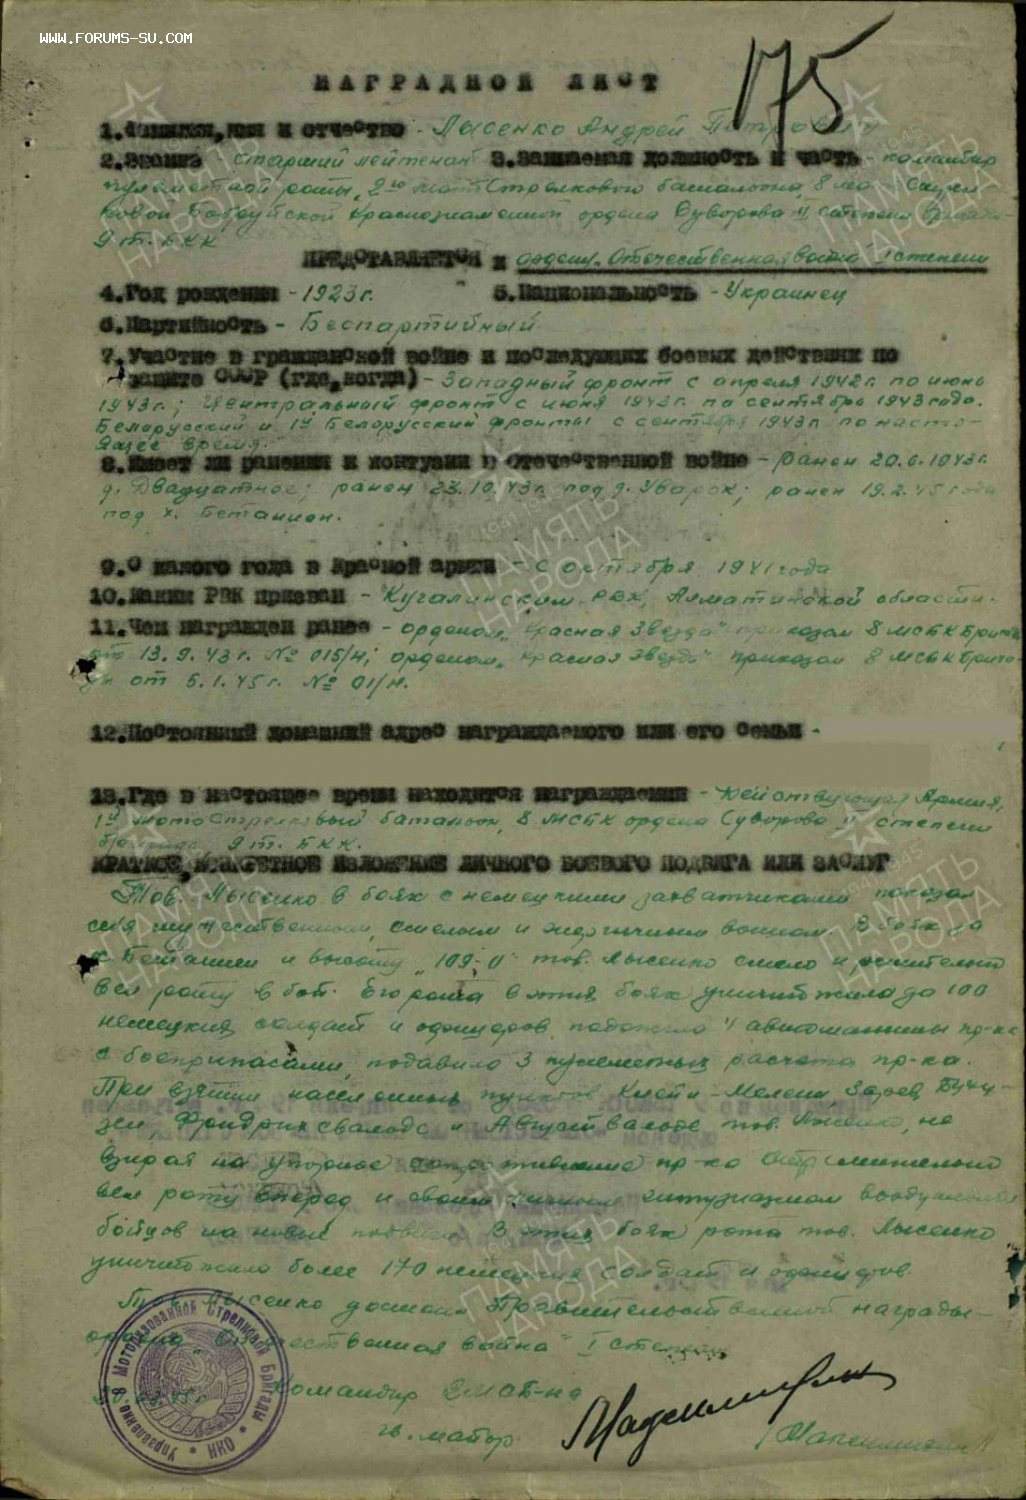 WWW.FORUMS-SU.COM
175
НАГРАДНОЙ ЛИСТ
1.Фамилия,имя и отчество - Лысенко Андрей Петрович
2.Звание - старший лейтенант 3.Занимаемая должность и часть - командир
пулеметной роты, 2го мотострелкового баталиона, 8 мото Стрел
ковой Бобруйской Краснознаменной ордена Суворова II степени бригады
9 т. БКК
ПРЕДСТАВЛЯЕТСЯ к ордену Отечественная война I степени
4.Год рождения - 1923 г. 5.Национальность - Украинец
6.Партийность - Беспартийный
7.Участие в гражданской войне и последующих боевых действиях по
защите СССР (где,когда) - Западный фронт с апреля 1942 г. по июнь
1943 г.; Центральный фронт с июня 1943 г. по сентябрь 1943 года.
Беларусский и 1й Беларусский фронты с сентября 1943 г. по насто-
ящее время.
8.Имеет ли ранения и контузии в Отечественной войне - ранен 20.6.1943 г.
д. Двадцатное; ранен 23.10.43 г. под д. Уварок; ранен 19.2.45 года
под х. Бетанион.
9.С какого года в Красной армии - С октября 1941 года
10.Каким РВК призван - Кугалинским РВК, Алматинской области.
11.Чем награжден ранее - орденом "Красная Звезда" приказом 8 МСБК бригады
от 13.9.43 г. № 015/н; орденом "Красная Звезда" приказом 8 МСБК брига-
ды от 6.1.45 г. № 01/н.
12.Постоянный домашний адрес награждаемого или его семьи -
13.Где в настоящее время находится награждаемый - Действующая Армия,
1й мотострелковый батальон, 8 МСБК ордена Суворова II степени
бригада, 9 т. БКК.
КРАТКОЕ, КОНКРЕТНОЕ ИЗЛОЖЕНИЕ ЛИЧНОГО БОЕВОГО ПОДВИГА ИЛИ ЗАСЛУГ
Тов. Лысенко в боях с немецкими захватчиками показал
себя мужественным, смелым и энергичным воином. В боях за
х. Бетанием и высоту "109,0" тов. Лысенко смело и решительно
вел роту в бой. Его рота в этих боях уничтожила до 100
немецких солдат и офицеров, подожгла 4 автомашины пр-ка
с боеприпасами, подавила 3 пулеметных расчета пр-ка.
При взятии населенных пунктов Клейн-Меллен, Фридрихсвальде и Августвальде тов. Лысенко, не
взирая на упорное сопротивление пр-ка стремительно
вел роту вперед и своим личным энтузиазмом воодушевлял
бойцов на новые подвиги. В этих боях рота тов. Лысенко
уничтожила более 170 немецких солдат и офицеров.
Тов. Лысенко достоин Правительственной награды -
ордена "Отечественная война" I степени
Командир 2 МСБ-на
гв. майор
Управление 8 Моторизованной Стрелковой Бригады НКО
ПАМЯТЬ НАРОДА
1941-1945